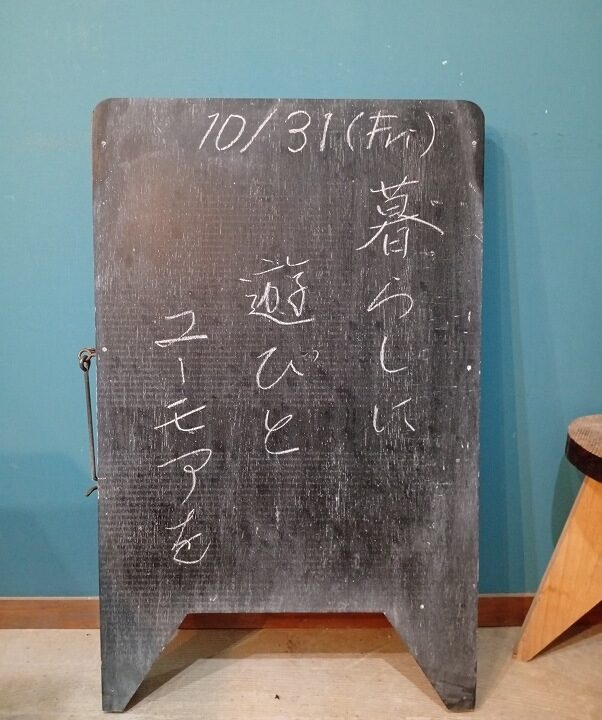 10/31(Fri)
暮らしに
遊びと
ユーモアを